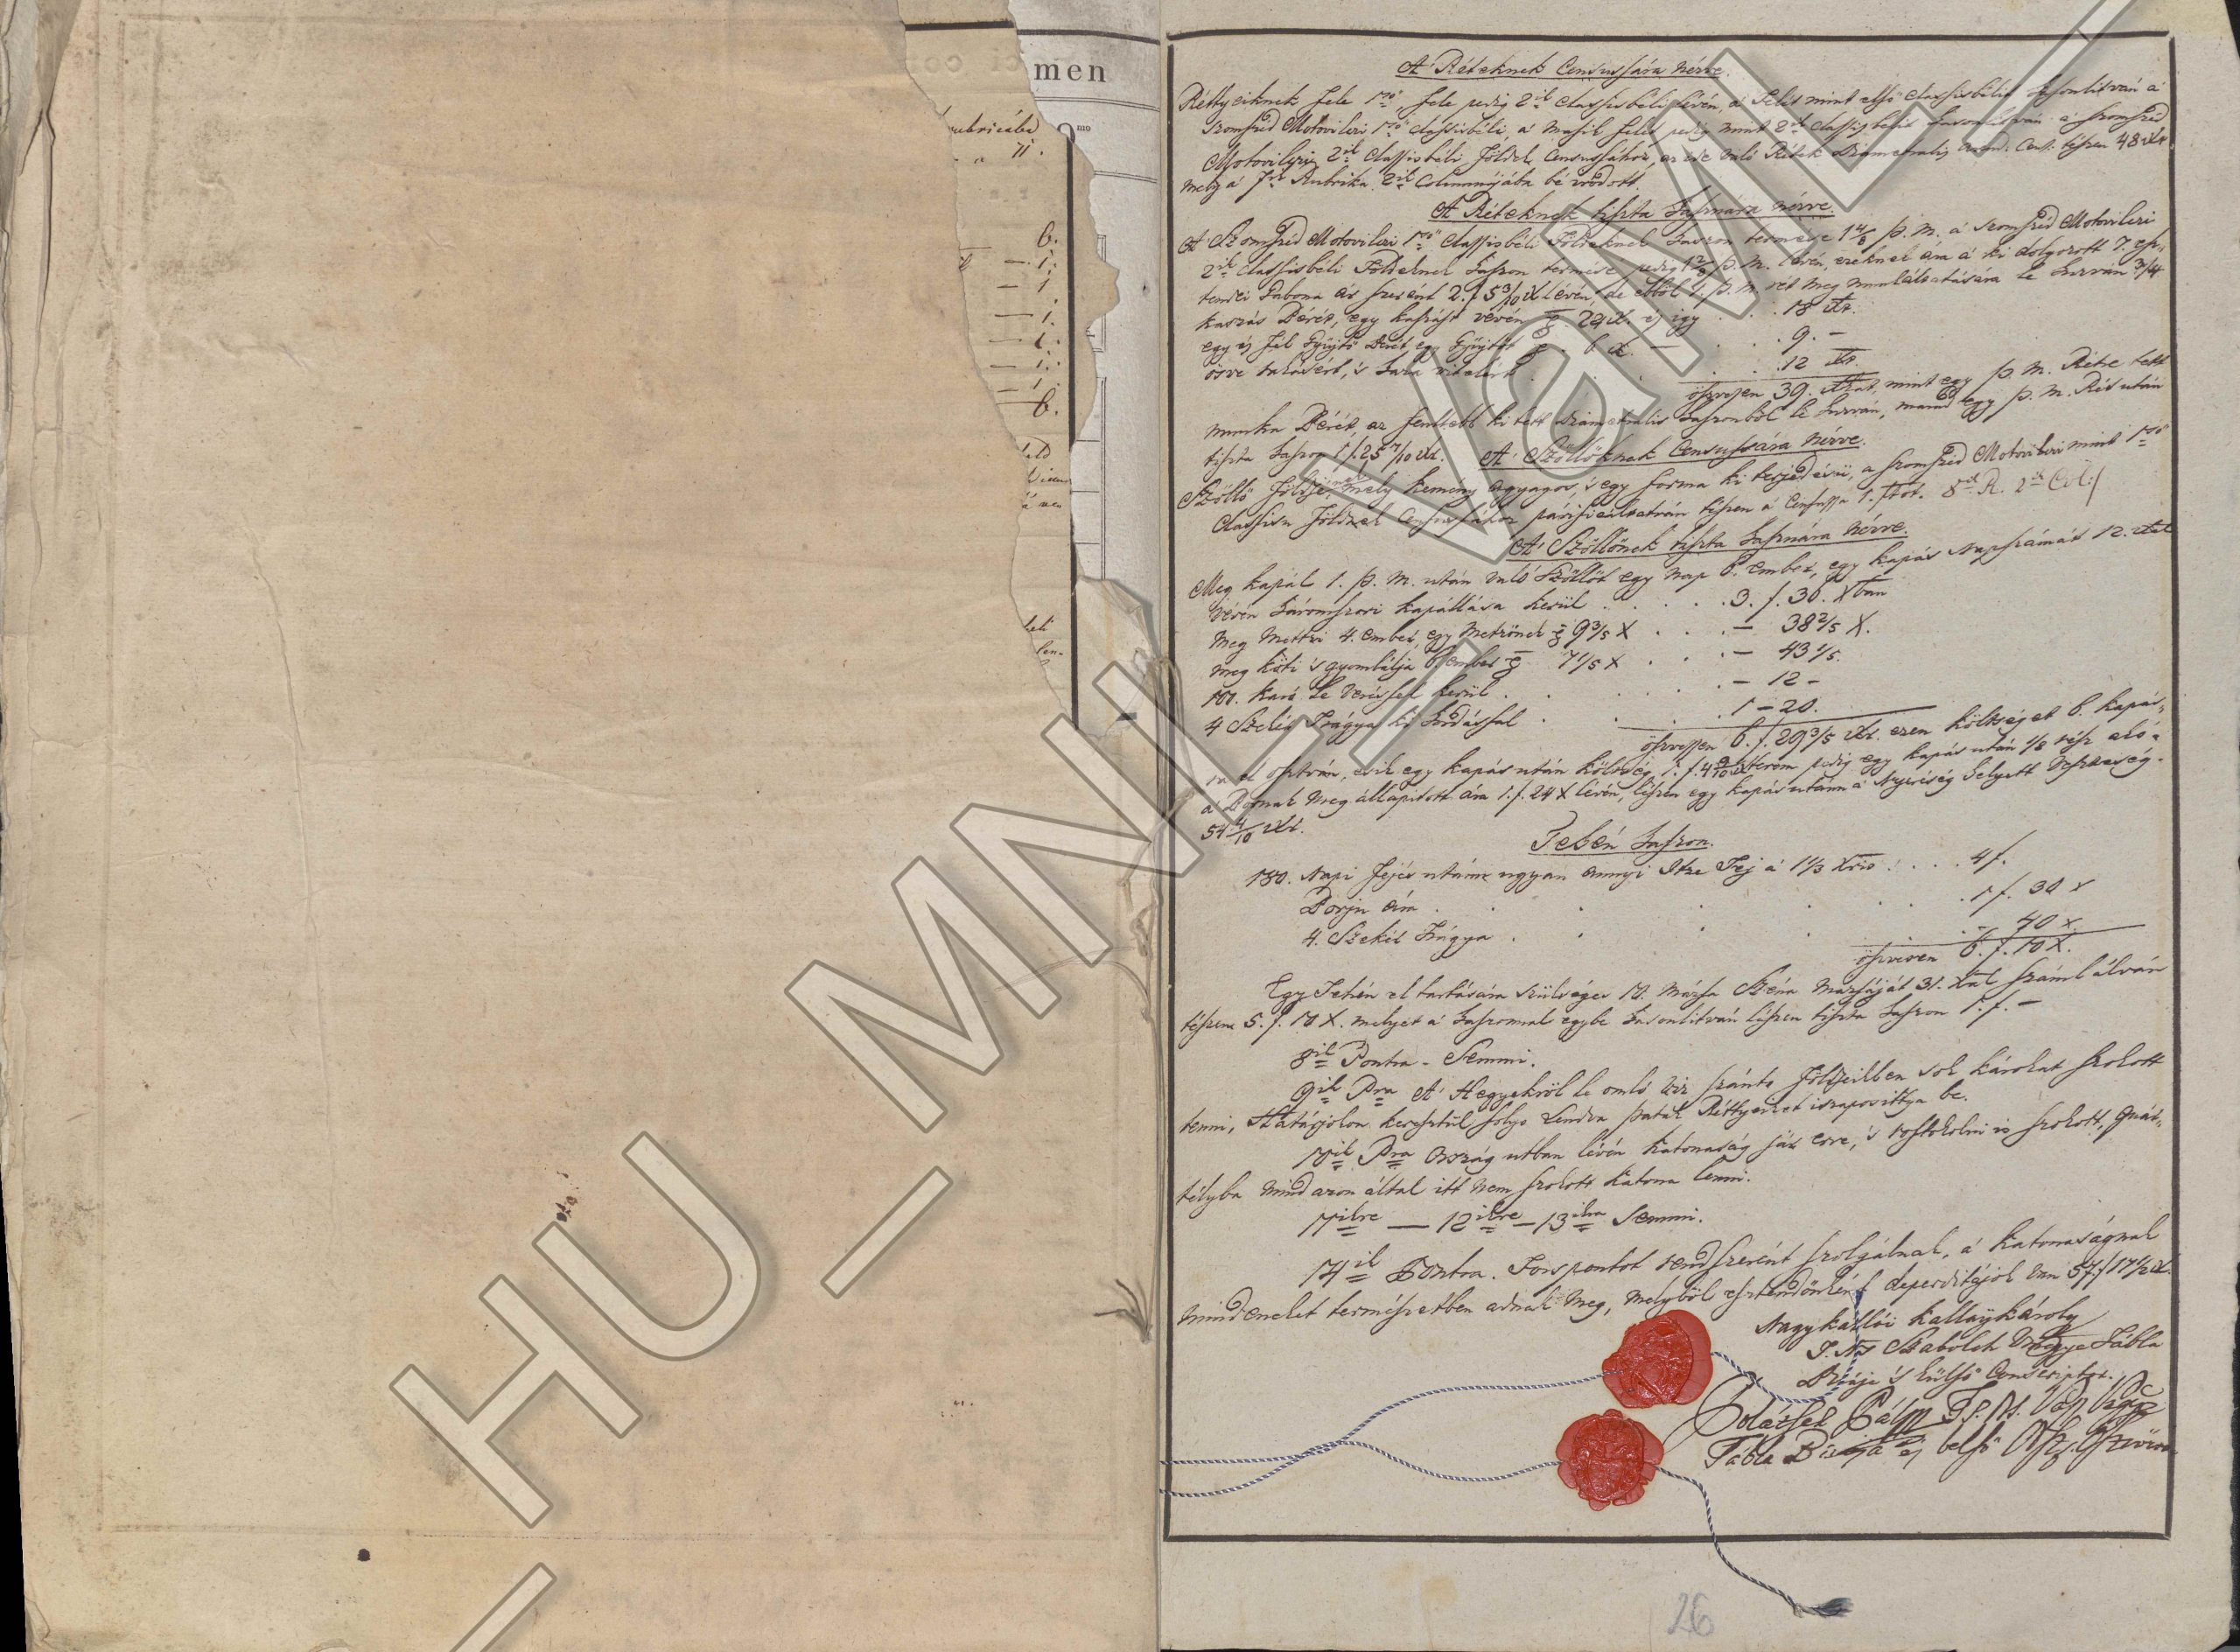 men
0mo
rubricába
11.
6.
1.
1
1.
1.
1.
1.
6.
A' Réteknek Censussára nézve.
Réttyeiknek fele 1ső, fele pedig 2ik Classisbéli lévén, a' felit mint első Classisbélit hasonlitván a'
szomszéd Motovileri 1ső Classisbéli, a' másik felit pedig mint 2ik Classisbélit hasonlitván a' szomszéd
Motovileri 2ik Classisbéli Földek Censussához, az ide való Rétek Diametralis Cens. tészen 48 xkr
mely a' 7ik Rubrika 2ik Columnájába bé iródott.
A' Réteknek tiszta hasznára nézve.
A' Szomszéd Motovileri 1ső Classisbéli Földeknek haszon termése 1 4/8 p. m. a' szomszéd Motovileri
2ik Classisbéli Földeknek haszon termése pedig 1 2/8 p. m. lévén, ezeknek ára a' ki dolgozott 7. esz„
tendei Gabona ár szerént 2. f 5 3/10 x lévén, de ebből 1. p. m. rét meg munkáltatására le huzván 3/4
kaszás Bérét, egy kaszást vévén p. 24 x. és igy . . . 18 xr.
egy és fél Gyüjtő Bérét egy Gyüjtőt p. 6 x. — . . . 9. –
öszve rakásért, és haza vitelért . . . . 12 xr.
öszvesen 39. xrat, mint egy p. m. Rétre tett
munka Bérét az fentebb ki tett Diametralis haszonból le huzván, marad egy p. m. Rét után
tiszta haszon 1 f. 25 7/10 xr. A' Szőllőknek Censussára nézve.
Szőllő földje, mely kemény agyagos, 's egy forma ki terjedésü, a szomszéd Motovileri mint 1ső
Classisu Földnek Censussához tészen a' Censussa 1. ftot. 8ik R. 2ik Col.
A' Szőllőnek tiszta hasznára nézve.
Meg kapál 1. p. m. után való Szőllőt egy nap 6. ember, egy kapás Napszámát 12. xral
vévén háromszori kapállása kerül . . . . . 3. f. 36. xban
Meg Mettzi 4. ember, egy Metzőnek p 9 3/5 x . . . – 38 2/5 x.
meg köti 's gyomlálja 6 ember p 7 1/5 x . . . – 43 1/5.
100. karó le veréssel kerül . . . . . – 12 –
4 Szekér Trágya ki hordással . . . . 1 – 20.
öszvessen 6. f. 29 3/5 xr. ezen költséget 6. kapás„
ra el osztván, esik egy kapás után költség 1. f. 4 9/10 x terem pedig egy kapás után 1/8 rész akó„
a' Bornak meg állapitott ára 1. f. 24 x lévén, lészen egy kapás utánn a' Nyereség helyett Veszteség
54 4/10 xr.
Tehén haszon.
180. Napi fejés utánn ugyan annyi Itze Tej á 1 1/3 xrio . . . 4 f.
Borju ára . . . . . . . . 1 f. 30 x
4. Szekér Trágya . . . . . – 40 x.
öszvesen 6. f. 10 x.
Egy Tehén el tartására szükséges 10. mázsa Széna mázsáját 31. xral számlálván
tészenn 5. f. 10 x. melyet a' haszonnal egybe hasonlitván lészen tiszta haszon 1. f. –
8ik Pontra – Semmi.
9ik Pra A' Hegyekröl le omló Viz szánto földjeikben sok károkat szokott
tenni, Határjokon keresztül folyó Lendva patak Réttyeiket iszapositтya be.
10ik Pra Ország utban lévén katonaság jár erre, 's rastokolni is szokott, quár„
télyba mind azon által itt nem szokott katona lenni.
11ikre — 12ikre – 13ikra Semmi.
14ik Pontra. Forspontot rendszerént szolgálnak, a' katonaságnak
mindeneket természetben adnak meg, melyből esztendőnként deperditájok van 54 f 17 1/2 x.
Nagykállói Kallaÿ Károly
T. Ns Szabolch Vármegye Tábla
Birája 's külső Conscriptor.
Bolársek Pálm T. N. Vas Vgye
Tábla Birája és belső
26